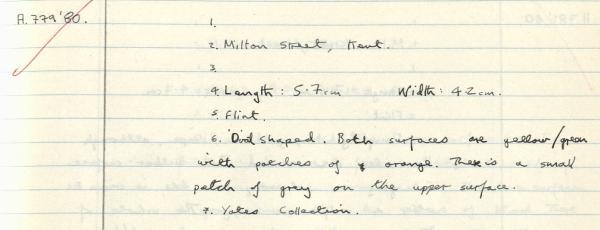 A.779'80.
1.
2. Milton Street, Kent.
3.
4. Length: 5.7cm Width: 4.2cm.
5. Flint.
6. Ovid shaped. Both surfaces are yellow/green
with patches of orange. There is a small
patch of grey on the upper surface.
7. Yates Collection.